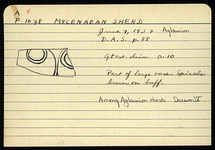 A V
P 1078 MYCENAEAN SHERD
June 2, 1937 Aglaurion
D.A.S. p. 88
Gtst. dim. 0.10
Part of large vase. Spirals
brown on buff.
Among Aglaurion sherds. Drawer II